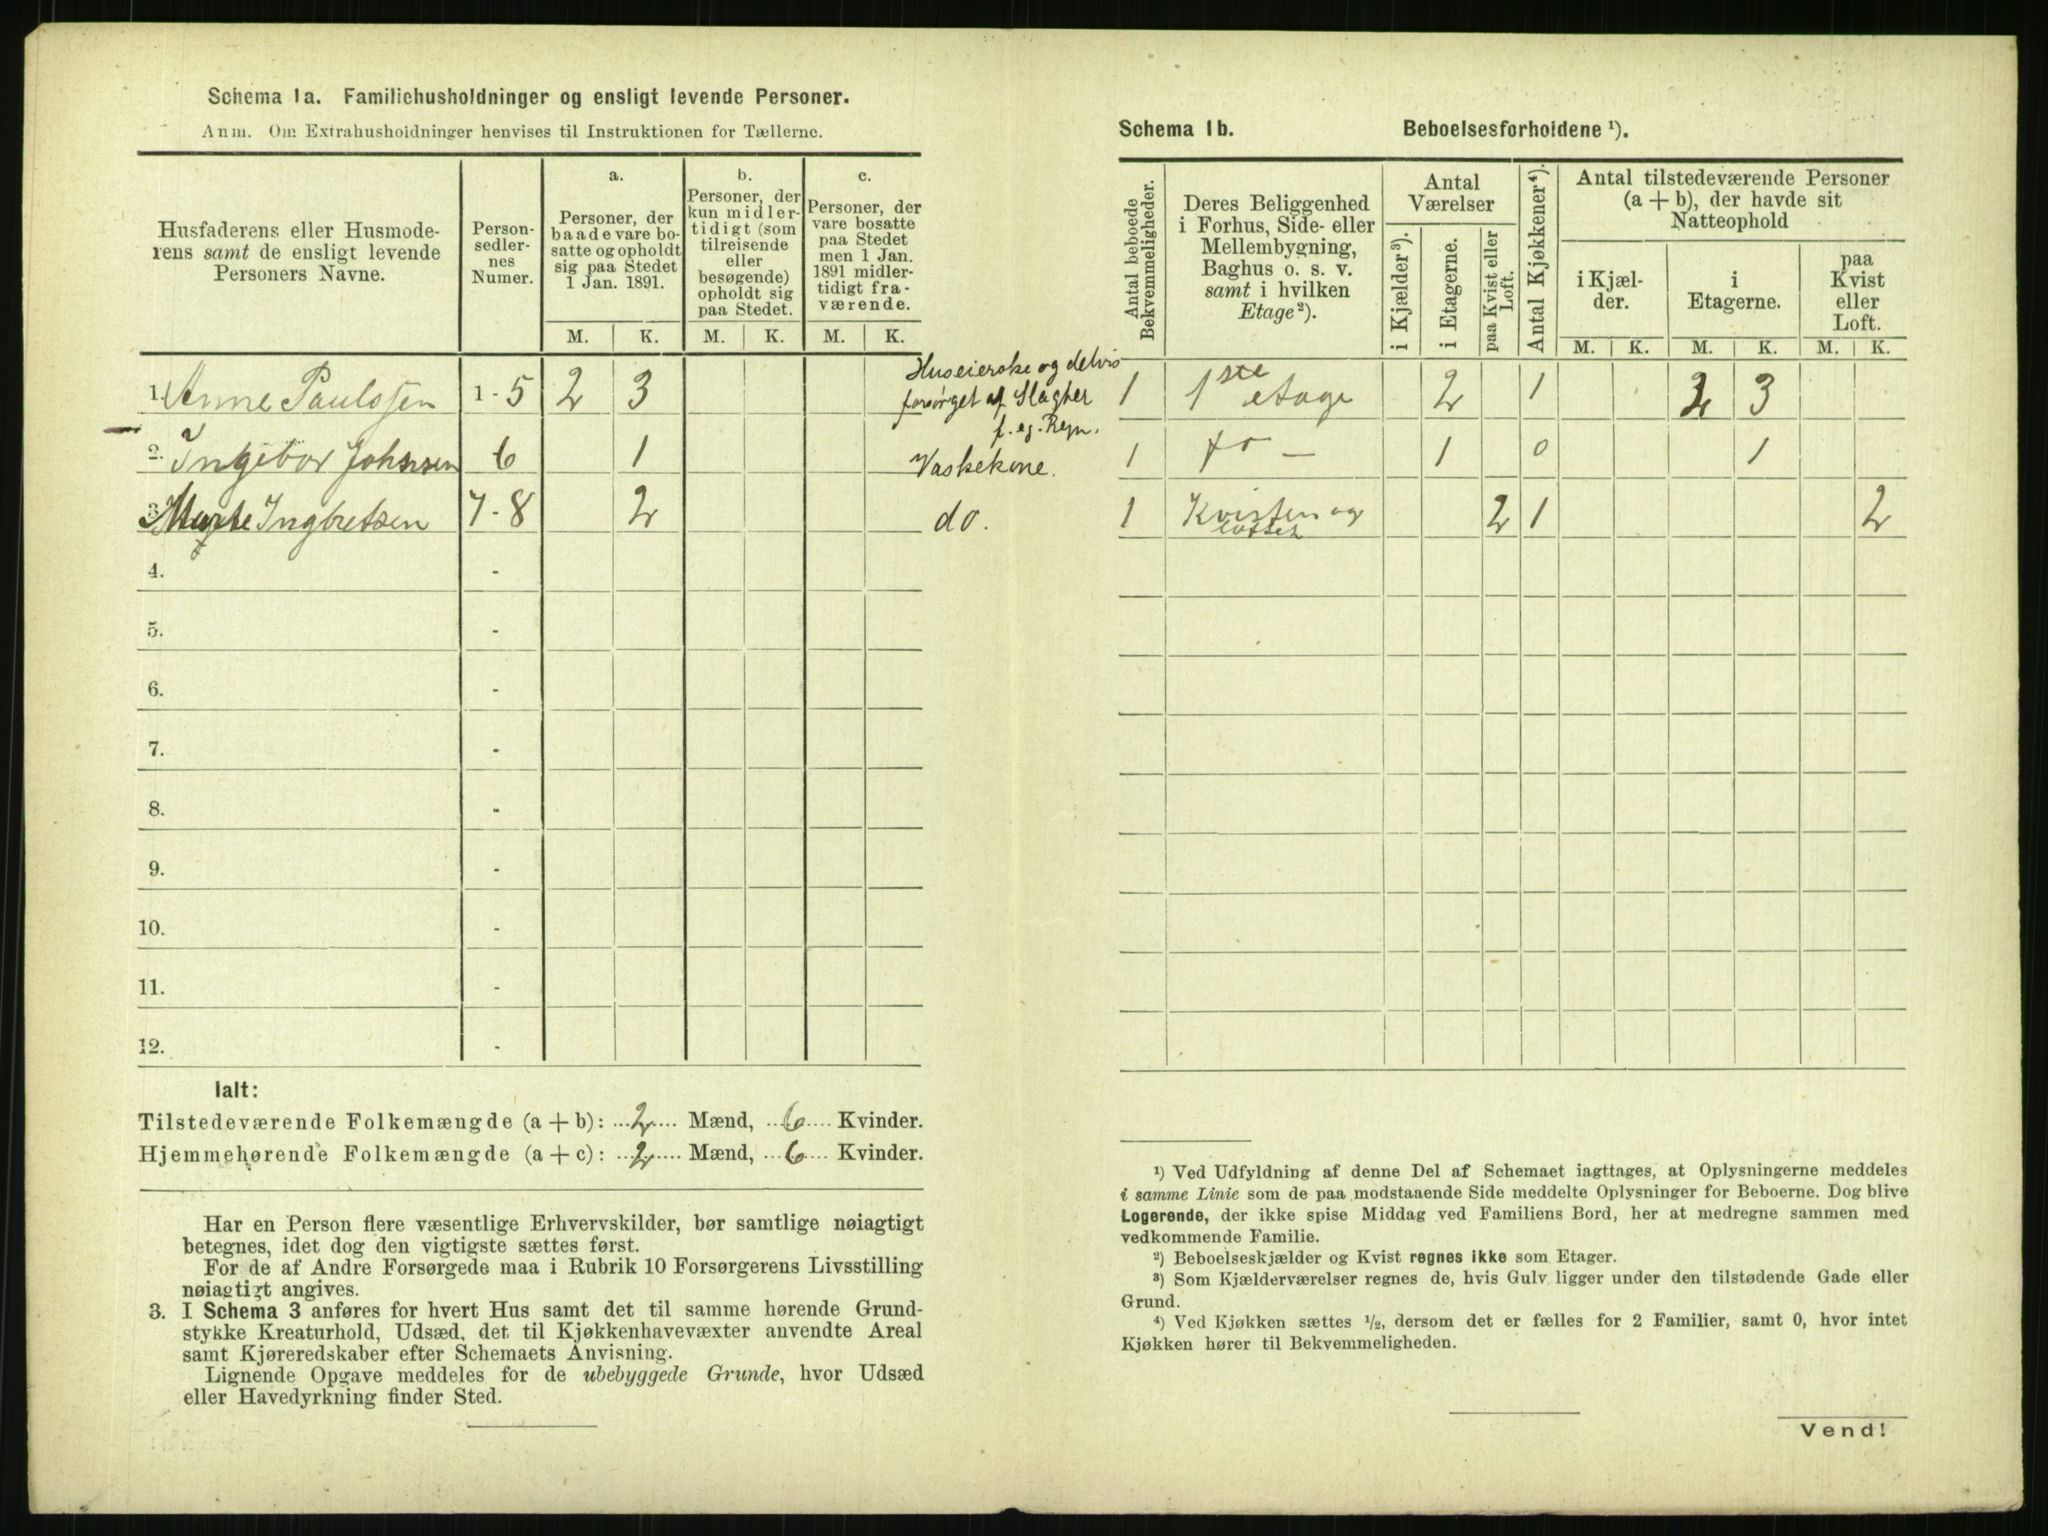 Schema 1a. Familiehusholdninger og ensligt levende Personer.
Anm. Om Extrahusholdninger henvises til Instruktionen for Tællerne.
Husfaderens eller Husmode-
rens samt de ensligt levende
Personers Navne.
Person-
sedler-
nes
Numer.
a.
Personer, der
baade vare bo-
satte og opholdt
sig paa Stedet
1 Jan. 1891.
b.
Personer, der
kun midler-
tidigt (som
tilreisende
eller
besøgende)
opholdt sig
paa Stedet.
c.
Personer, der
vare bosatte
paa Stedet
men 1 Jan.
1891 midler-
tidigt fra-
værende.
M. K. M. K. M. K.
1. Anne Paulssen 1-5 2 3
Huseierske og delvis
forsørget af Slagter
f. eg. Regn.
2. Ingebor Johnsen 6 1 Vaskekone.
3. Marte Ingbretsen 7-8 2 do.
4. -
5. -
6. -
7. -
8. -
9. -
10. -
11. -
12. -
Ialt:
Tilstedeværende Folkemængde (a + b): 2 Mænd, 6 Kvinder.
Hjemmehørende Folkemængde (a + c): 2 Mænd, 6 Kvinder.
Har en Person flere væsentlige Erhvervskilder, bør samtlige nøiagtigt
betegnes, idet dog den vigtigste sættes først.
For de af Andre Forsørgede maa i Rubrik 10 Forsørgerens Livsstilling
nøiagtigt angives.
3. I Schema 3 anføres for hvert Hus samt det til samme hørende Grund-
stykke Kreaturhold, Udsæd, det til Kjøkkenhavevæxter anvendte Areal
samt Kjøreredskaber efter Schemaets Anvisning.
Lignende Opgave meddeles for de ubebyggede Grunde, hvor Udsæd
eller Havedyrkning finder Sted.
Schema 1b. Beboelsesforholdene ¹).
Antal beboede
Bekvemmeligheder.
Deres Beliggenhed
i Forhus, Side- eller
Mellembygning,
Baghus o. s. v.
samt i hvilken
Etage²).
Antal
Værelser
i Kjælder³).
i Etagerne.
paa Kvist eller
Loft.
Antal Kjøkkener⁴).
Antal tilstedeværende Personer
(a + b), der havde sit
Natteophold
i Kjæl-
der.
i
Etagerne.
paa
Kvist
eller
Loft.
M. K. M. K. M. K.
1 1ste etage 2 1 2 3
1 do — 1 0 1
1 Kvisten og 2 1 2
¹) Ved Udfyldning af denne Del af Schemaet iagttages, at Oplysningerne meddeles
i samme Linie som de paa modstaaende Side meddelte Oplysninger for Beboerne. Dog blive
Logerende, der ikke spise Middag ved Familiens Bord, her at medregne sammen med
vedkommende Familie.
²) Beboelseskjælder og Kvist regnes ikke som Etager.
³) Som Kjælderværelser regnes de, hvis Gulv ligger under den tilstødende Gade eller
Grund.
⁴) Ved Kjøkken sættes ½, dersom det er fælles for 2 Familier, samt 0, hvor intet
Kjøkken hører til Bekvemmeligheden.
Vend!